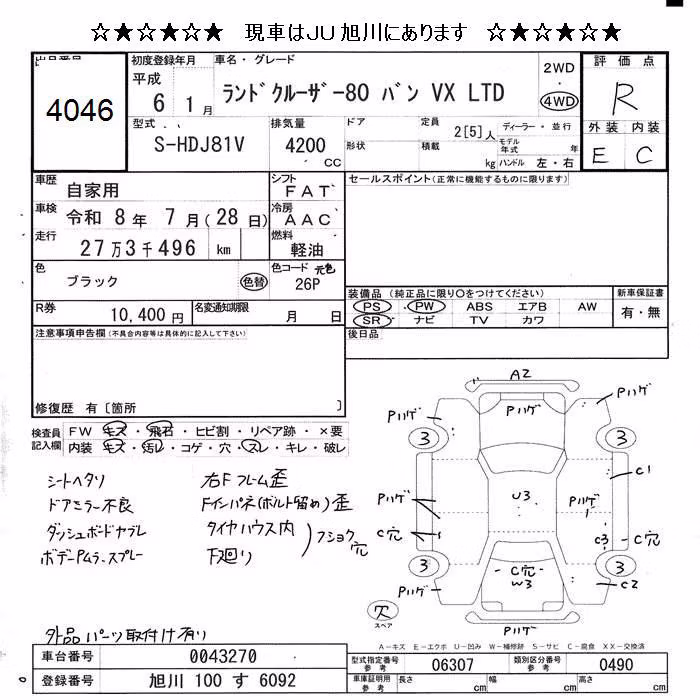 ☆★☆★☆★☆ 現車はJU旭川にあります ☆★☆★☆★☆
出品番号
4046
初度登録年月
平成
6 1月
車名・グレード
ランドクルーザー80 バン VX LTD
2WD
・
4WD
評価点
R
外装 内装
E C
型式
S-HDJ81V
排気量
4200
cc
ドア
形状
定員
2[5]人
積載
kg
ディーラー・並行
モデル年式 年
ハンドル 左・右
車歴 自家用
車検 令和 8年 7月(28日)
走行 27万3千496 km
シフト FAT
冷房 AAC
燃料 軽油
色 ブラック 色替
色コード 元色
26P
セールスポイント(正常に機能するものに限ります)
R券 10,400円
名変通知期限 月 日
装備品(純正品に限り○をつけてください)
PS・PW・ABS エアB AW
SR・ナビ TV カワ
新車保証書
有・無
注意事項申告欄(不具合内容等は具体的に記入して下さい)
後日品
修復歴 有〔箇所 〕
検査員記入欄
FW キズ・飛石・ヒビ割・リペア跡・×要
内装 キズ・汚レ・コゲ・穴・スレ・キレ・破レ
シートヘタリ
ドアミラー不良
ダッシュボードヤブレ
ボデーPムラ、スプレー
右Fフレーム歪
Fインパネ(ボルト留め)歪
タイヤハウス内
下廻り
フショク穴
外品パーツ取付け有り
A2
Pハゲ
Pハゲ
Pハゲ
3
3
C1
Pハゲ
U3
Pハゲ
C穴
1
C3
C穴
3
C穴
W3
3
Pハゲ
C2
穴
スペア
Pハゲ
A-キズ E-エクボ U-凹み W-補修跡 S-サビ C-腐食 XX-交換済
車台番号 0043270
登録番号 旭川 100 す 6092
型式指定番号
参考
06307
類別区分番号
参考
0490
車庫証明用
参考
長さ cm
幅 cm
高さ cm